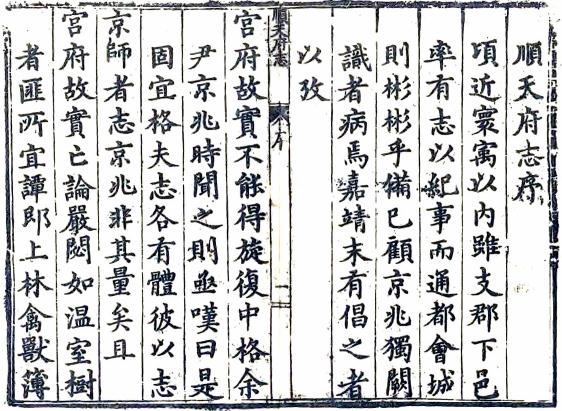 順天府志序
頃近寰寓以内雖支郡下邑
率有志以紀事而通都會城
則彬彬乎備已顧京兆獨闕
識者病焉嘉靖末有倡之者
以攷
順天府志
序
一
宮府故實不能得旋復中格余
尹京兆時聞之則亟嘆曰是
固宜格夫志各有體彼以志
京師者志京兆非其量矣且
宮府故實亡論嚴閟如温室樹
者匪所宜譚郎上林禽獸簿